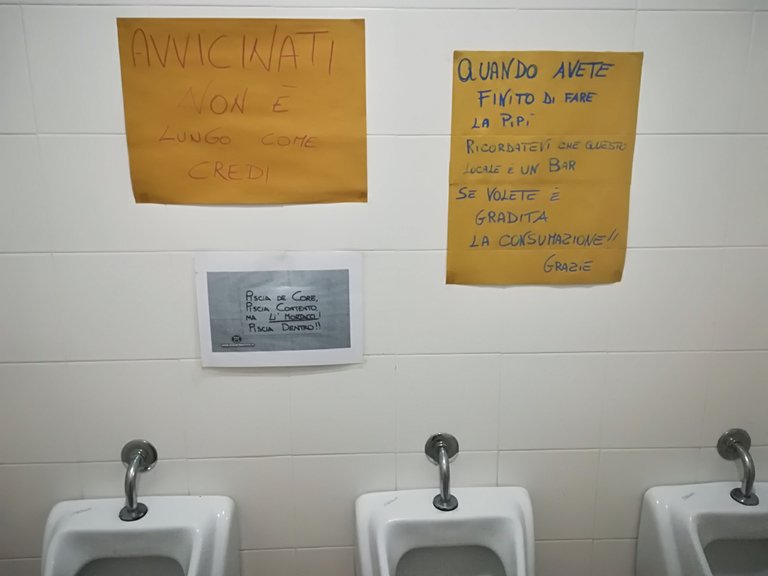 AVVICINATI
NON È
LUNGO COME
CREDI
QUANDO AVETE
FINITO DI FARE
LA PIPÌ
RICORDATEVI CHE QUESTO
LOCALE È UN BAR
SE VOLETE È
GRADITA
LA CONSUMAZIONE!!
GRAZIE
PISCIA DE CORE,
PISCIA CONTENTO,
MA LI' MORTACCI!
PISCIA DENTRO!!